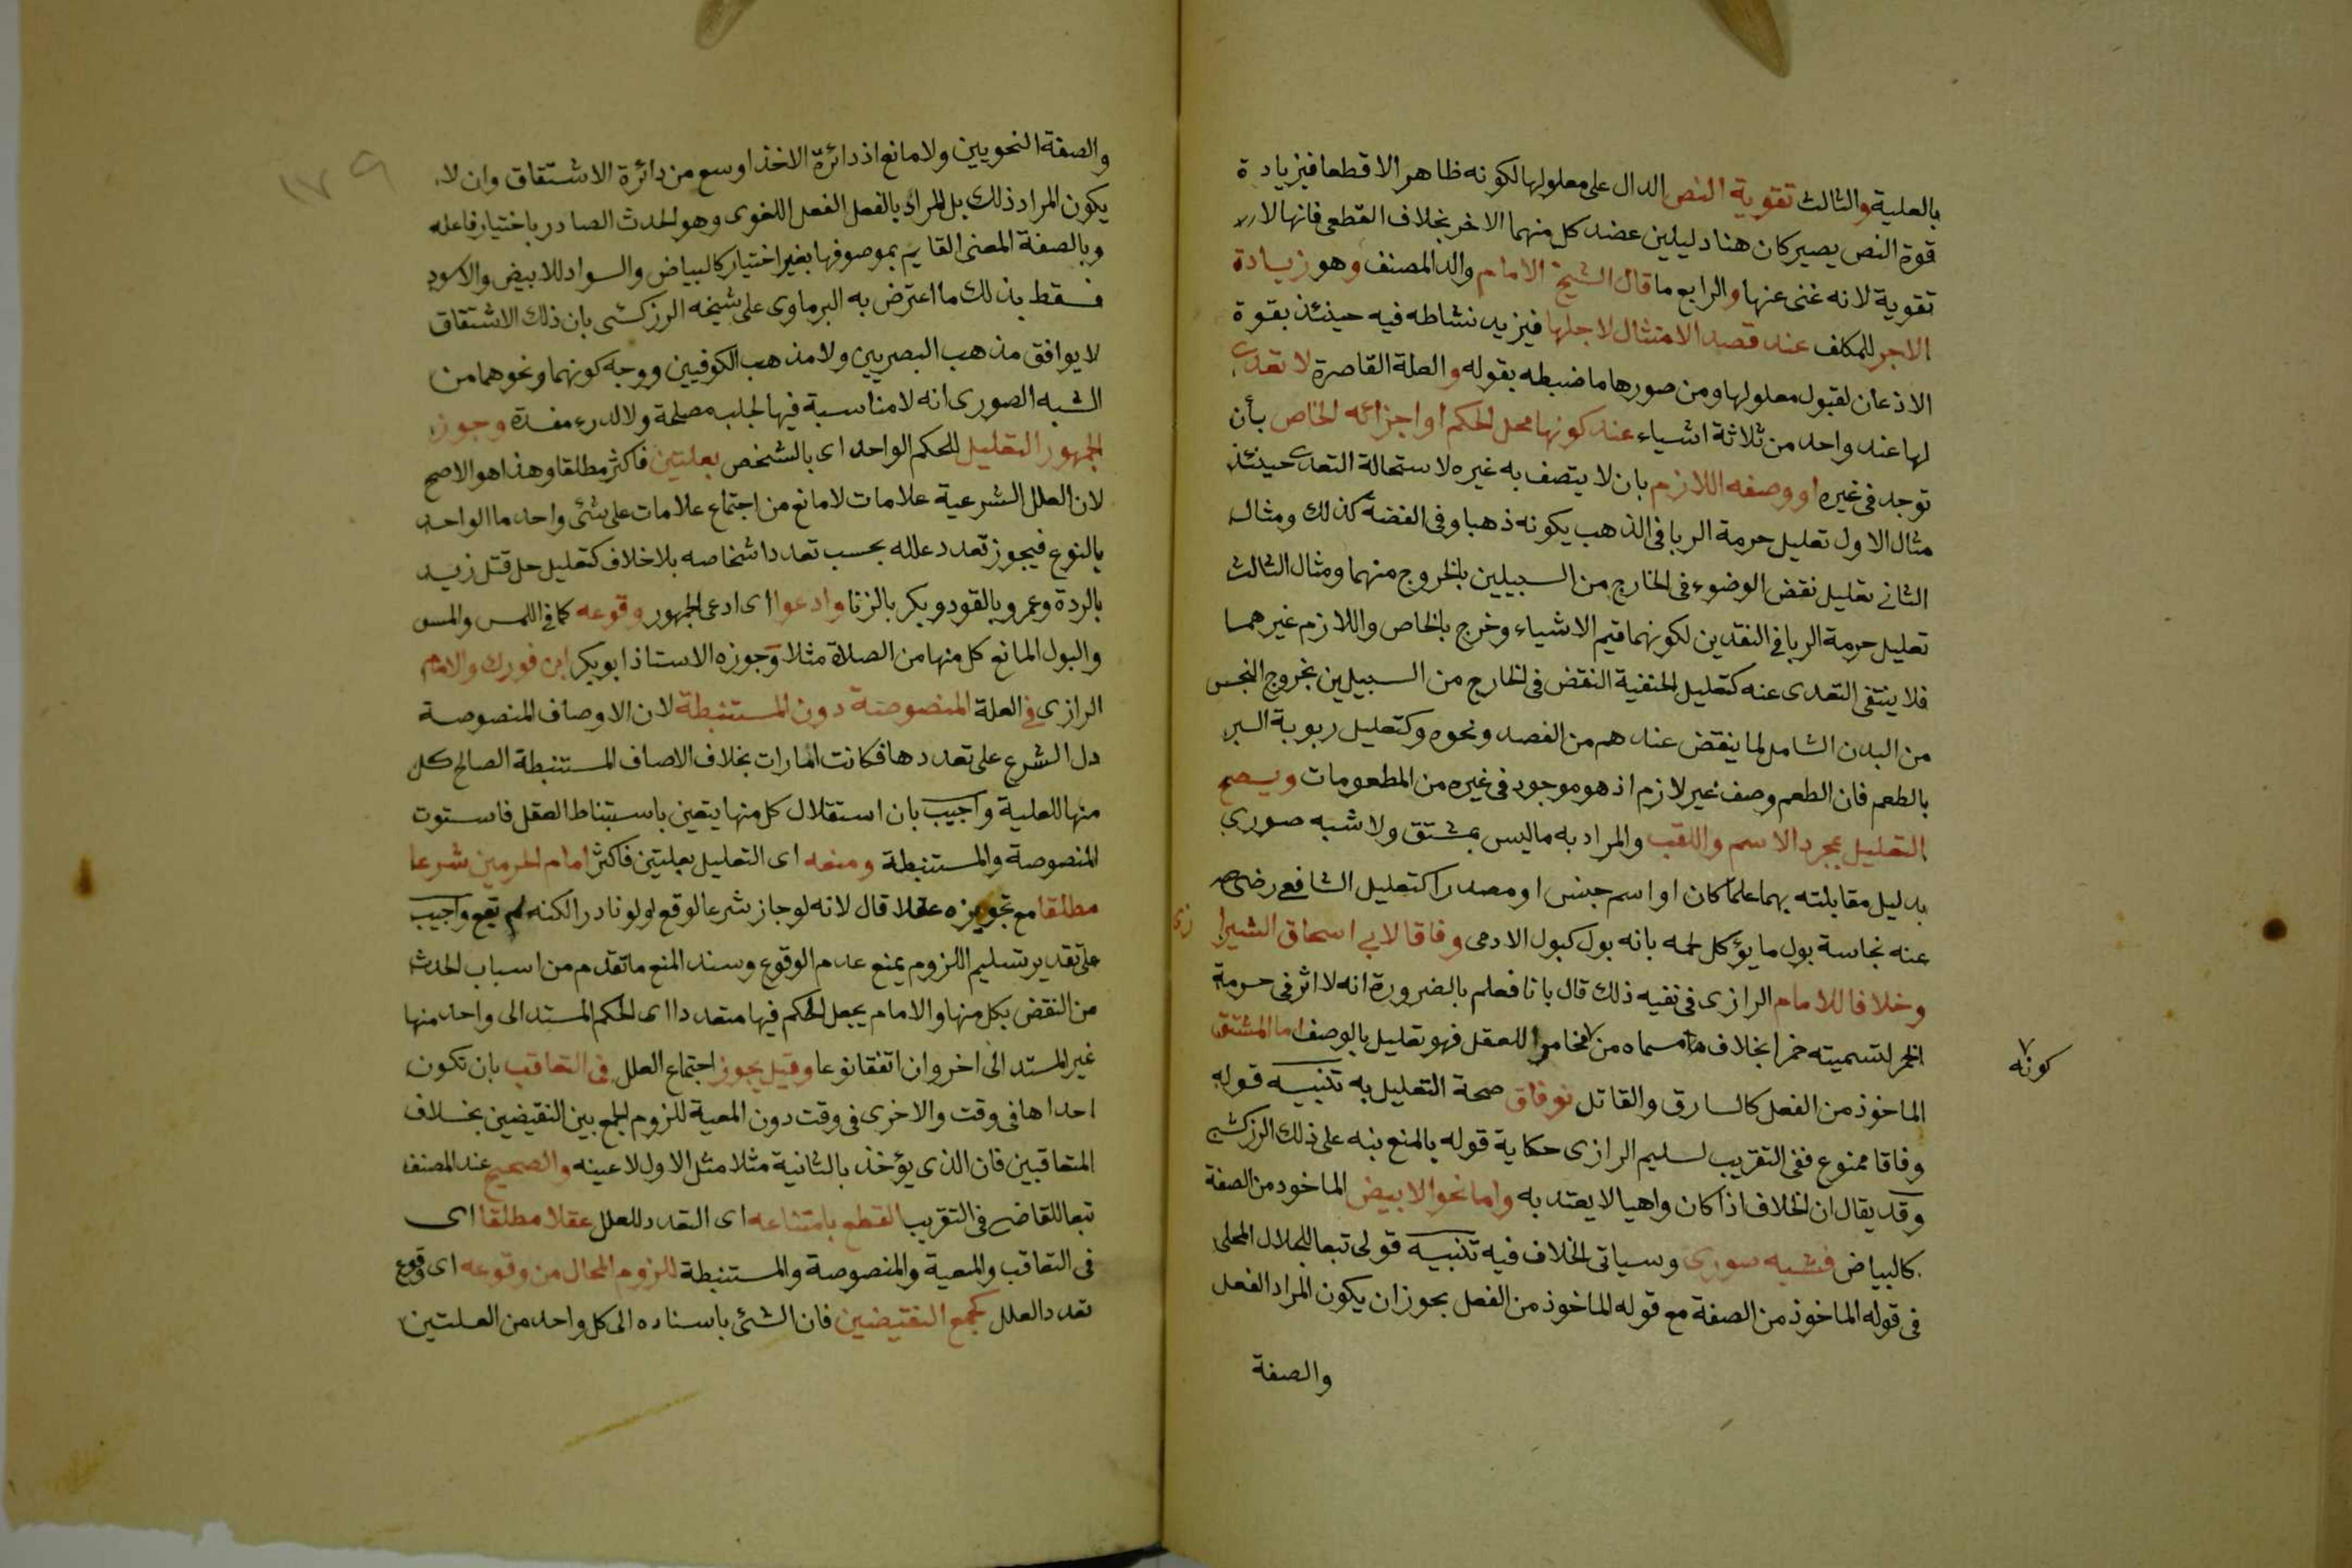 بالعلية والثالث تقوية النص الدال على معلولها لكونه ظاهرا لا قطعا فبزيادة
قوة النص يصير كان هنا دليلين عضد كل منهما الاخر بخلاف القطعى فانها لا
تقوية لانه غنى عنها والرابع ما قال الشيخ الامام والد المصنف وهو زيادة
الاجر للمكلف عند قصد الامتثال لاجلها فيزيد نشاطه فيه حينئذ بقوة
الاذعان لقبول معلولها ومن صورها ما ضبطه بقوله والعلة القاصرة لا تعدى
لها عند واحد من ثلاثة اشياء عند كونها محل الحكم او اجزائه الخاص بأن
توجد فى غيره او وصفه اللازم بان لا يتصف به غيره لاستحالة التعدى حينئذ
مثال الاول تعليل حرمة الربا فى الذهب بكونه ذهبا وفى الفضة كذلك ومثال
الثانى تعليل نقض الوضوء فى الخارج من السبيلين بالخروج منهما ومثال الثالث
تعليل حرمة الربا فى النقدين لكونهما قيم الاشياء وخرج بالخاص واللازم غيرهما
فلا ينتفى التعدى عنه كتعليل الحنفية النقض فى الخارج من السبيلين بخروج النجس
من البدن الشامل لما ينقض عندهم من الفصد ونحوه وكتعليل ربوية البر
بالطعم فان الطعم وصف غير لازم اذ هو موجود فى غيره من المطعومات ويصح
التعليل بمجرد الاسم واللقب والمراد به ما ليس بمشتق ولا شبه صورى
بدليل مقابلته بهما علما كان او اسم جنس او مصدرا كتعليل الشافعى رضى
عنه نجاسة بول ما يؤكل لحمه بانه بول كبول الادمى وفاقا لابى اسحاق الشيرا زى
وخلافا للامام الرازى فى نفيه ذلك قال بانا فعلم بالضرورة انه لا اثر فى حرمة
الخمر لتسميته خمرا بخلاف مسماه من مخامرا للعقل فهو تعليل بالوصف اما المشتق
كونه
الماخوذ من الفعل كالسارق والقاتل فوفاق صحة التعليل به تنبيه قوله
وفاقا ممنوع ففى التقريب لسليم الرازى حكاية قوله بالمنع نبه على ذلك الزركشى
وقد يقال ان الخلاف اذا كان واهيا لا يعتد به واما نحو الابيض الماخوذ من الصفة
كالبياض فشبه صورى وسياتى الخلاف فيه تنبيه قولى تبعا للجلال المحلى
فى قوله الماخوذ من الصفة مع قوله الماخوذ من الفعل يجوز ان يكون المراد الفعل
والصفة
١٧٩
والصفة النحويين ولا مانع اذ دائرة الاخذ اوسع من دائرة الاشتقاق وان لا
يكون المراد ذلك بل المراد بالفعل الفعل اللغوى وهو الحدث الصادر باختيار فاعله
وبالصفة المعنى القايم بموصوفها بغير اختيار كالبياض والسواد للابيض والاسود
فسقط بذلك ما اعترض به البرماوى على شيخه الزركشى بان ذلك الاشتقاق
لا يوافق مذهب البصريين ولا مذهب الكوفيين ووجه كونهما ونحوهما من
الشبه الصورى انه لا مناسبة فيها لجلب مصلحة ولا لدرء مفسدة وجوز
الجمهور التعليل للحكم الواحد اى بالشخص بعلتين فاكثر مطلقا وهذا هو الاصح
لان العلل الشرعية علامات لا مانع من اجتماع علامات على شئ واحد ما الواحد
بالنوع فيجوز تعدد علله بحسب تعدد اشخاصه بلا خلاف كتعليل حل قتل زيد
بالردة وعمرو بالقود وبكر بالزنا وادعوا اى ادعى الجمهور وقوعه كما فى اللمس والمس
والبول المانع كل منها من الصلاة مثلا وجوزه الاستاذ ابو بكر ابن فورك والامام
الرازى فى العلة المنصوصة دون المستنبطة لان الاوصاف المنصوصة
دل الشرع على تعددها فكانت امارات بخلاف الاصاف المستنبطة الصالح كل
منها للعلية واجيب بان استقلال كل منها يتعين باستنباط العقل فاستوت
المنصوصة والمستنبطة ومنعه اى التعليل بعلتين فاكثر امام الحرمين شرعا
مطلقا مع تجويزه عقلا قال لانه لو جاز شرعا لوقع ولو نادرا لكنه لم يقع واجيب
على تقدير تسليم اللزوم بمنع عدم الوقوع وسند المنع ما تقدم من اسباب الحدث
من النقض بكل منها والامام يجعل الحكم فيها متعددا اى الحكم المستند الى واحد منها
غير المستند الى اخر وان اتفقا نوعا وقيل يجوز اجتماع العلل فى التعاقب بان تكون
احداها فى وقت والاخرى فى وقت دون المعية للزوم الجمع بين النقيضين بخلاف
المتعاقبين فان الذى يؤخذ بالثانية مثلا مثل الاول لا عينه والصحيح عند المصنف
تبعا للقاضى فى التقريب القطع بامتناعه اى التعدد للعلل عقلا مطلقا اى
فى التعاقب والمعية والمنصوصة والمستنبطة للزوم المحال من وقوعه اى وقوع
تعدد العلل كجمع النقيضين فان الشئ باسناده الى كل واحد من العلتين